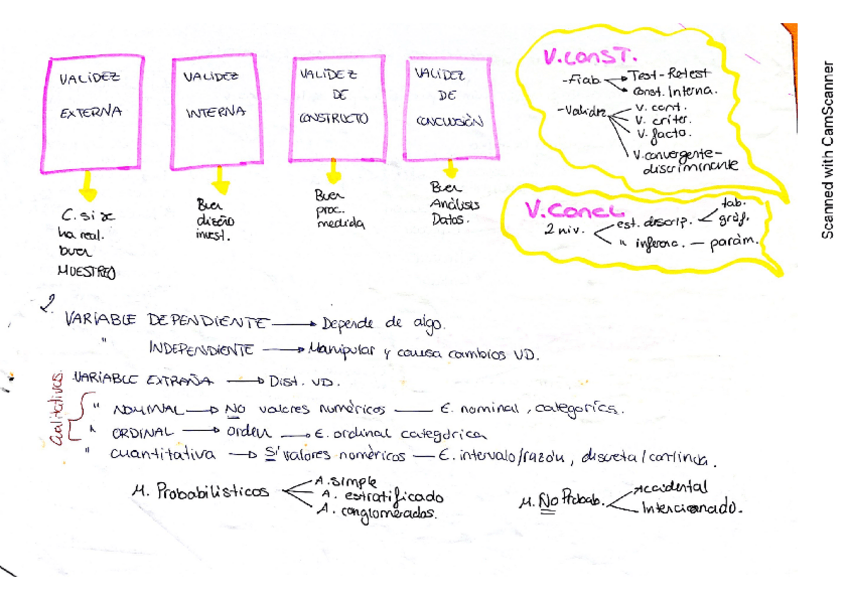 VALIDEZ
EXTERNA
VALIDEZ
INTERNA
VALIDEZ
DE
CONSTRUCTO
VALIDEZ
DE
CONCLUSIÓN
C. si se
ha real.
buen
MUESTREO
Buen
diseño
invest.
Buen
proc.
medida
Buen
Análisis
Datos.
V.CONST.
-Fiab Test-Retest
Const. Interna.
-Validez V. cont.
V. criter.
V. facto.
V.convergente-
discriminante
V.Concl
2 niv. est. descrip. tab.
gráf.
" inferenc. - parám.
2.
VARIABLE DEPENDIENTE → Depende de algo.
" INDEPENDIENTE → Manipular y causa cambios VD.
VARIABLE EXTRAÑA → Dist. VD.
Cualitativas
" NOMINAL → NO valores numéricos — E. nominal, categórica.
" ORDINAL → orden → E. ordinal categórica
" cuantitativa → SÍ valores numéricos — E. intervalo/razón, discreta/continua.
M. Probabilísticos A. simple
A. estratificado
A. conglomerados.
M. No Probab. Accidental
Intencionado.
Scanned with CamScanner